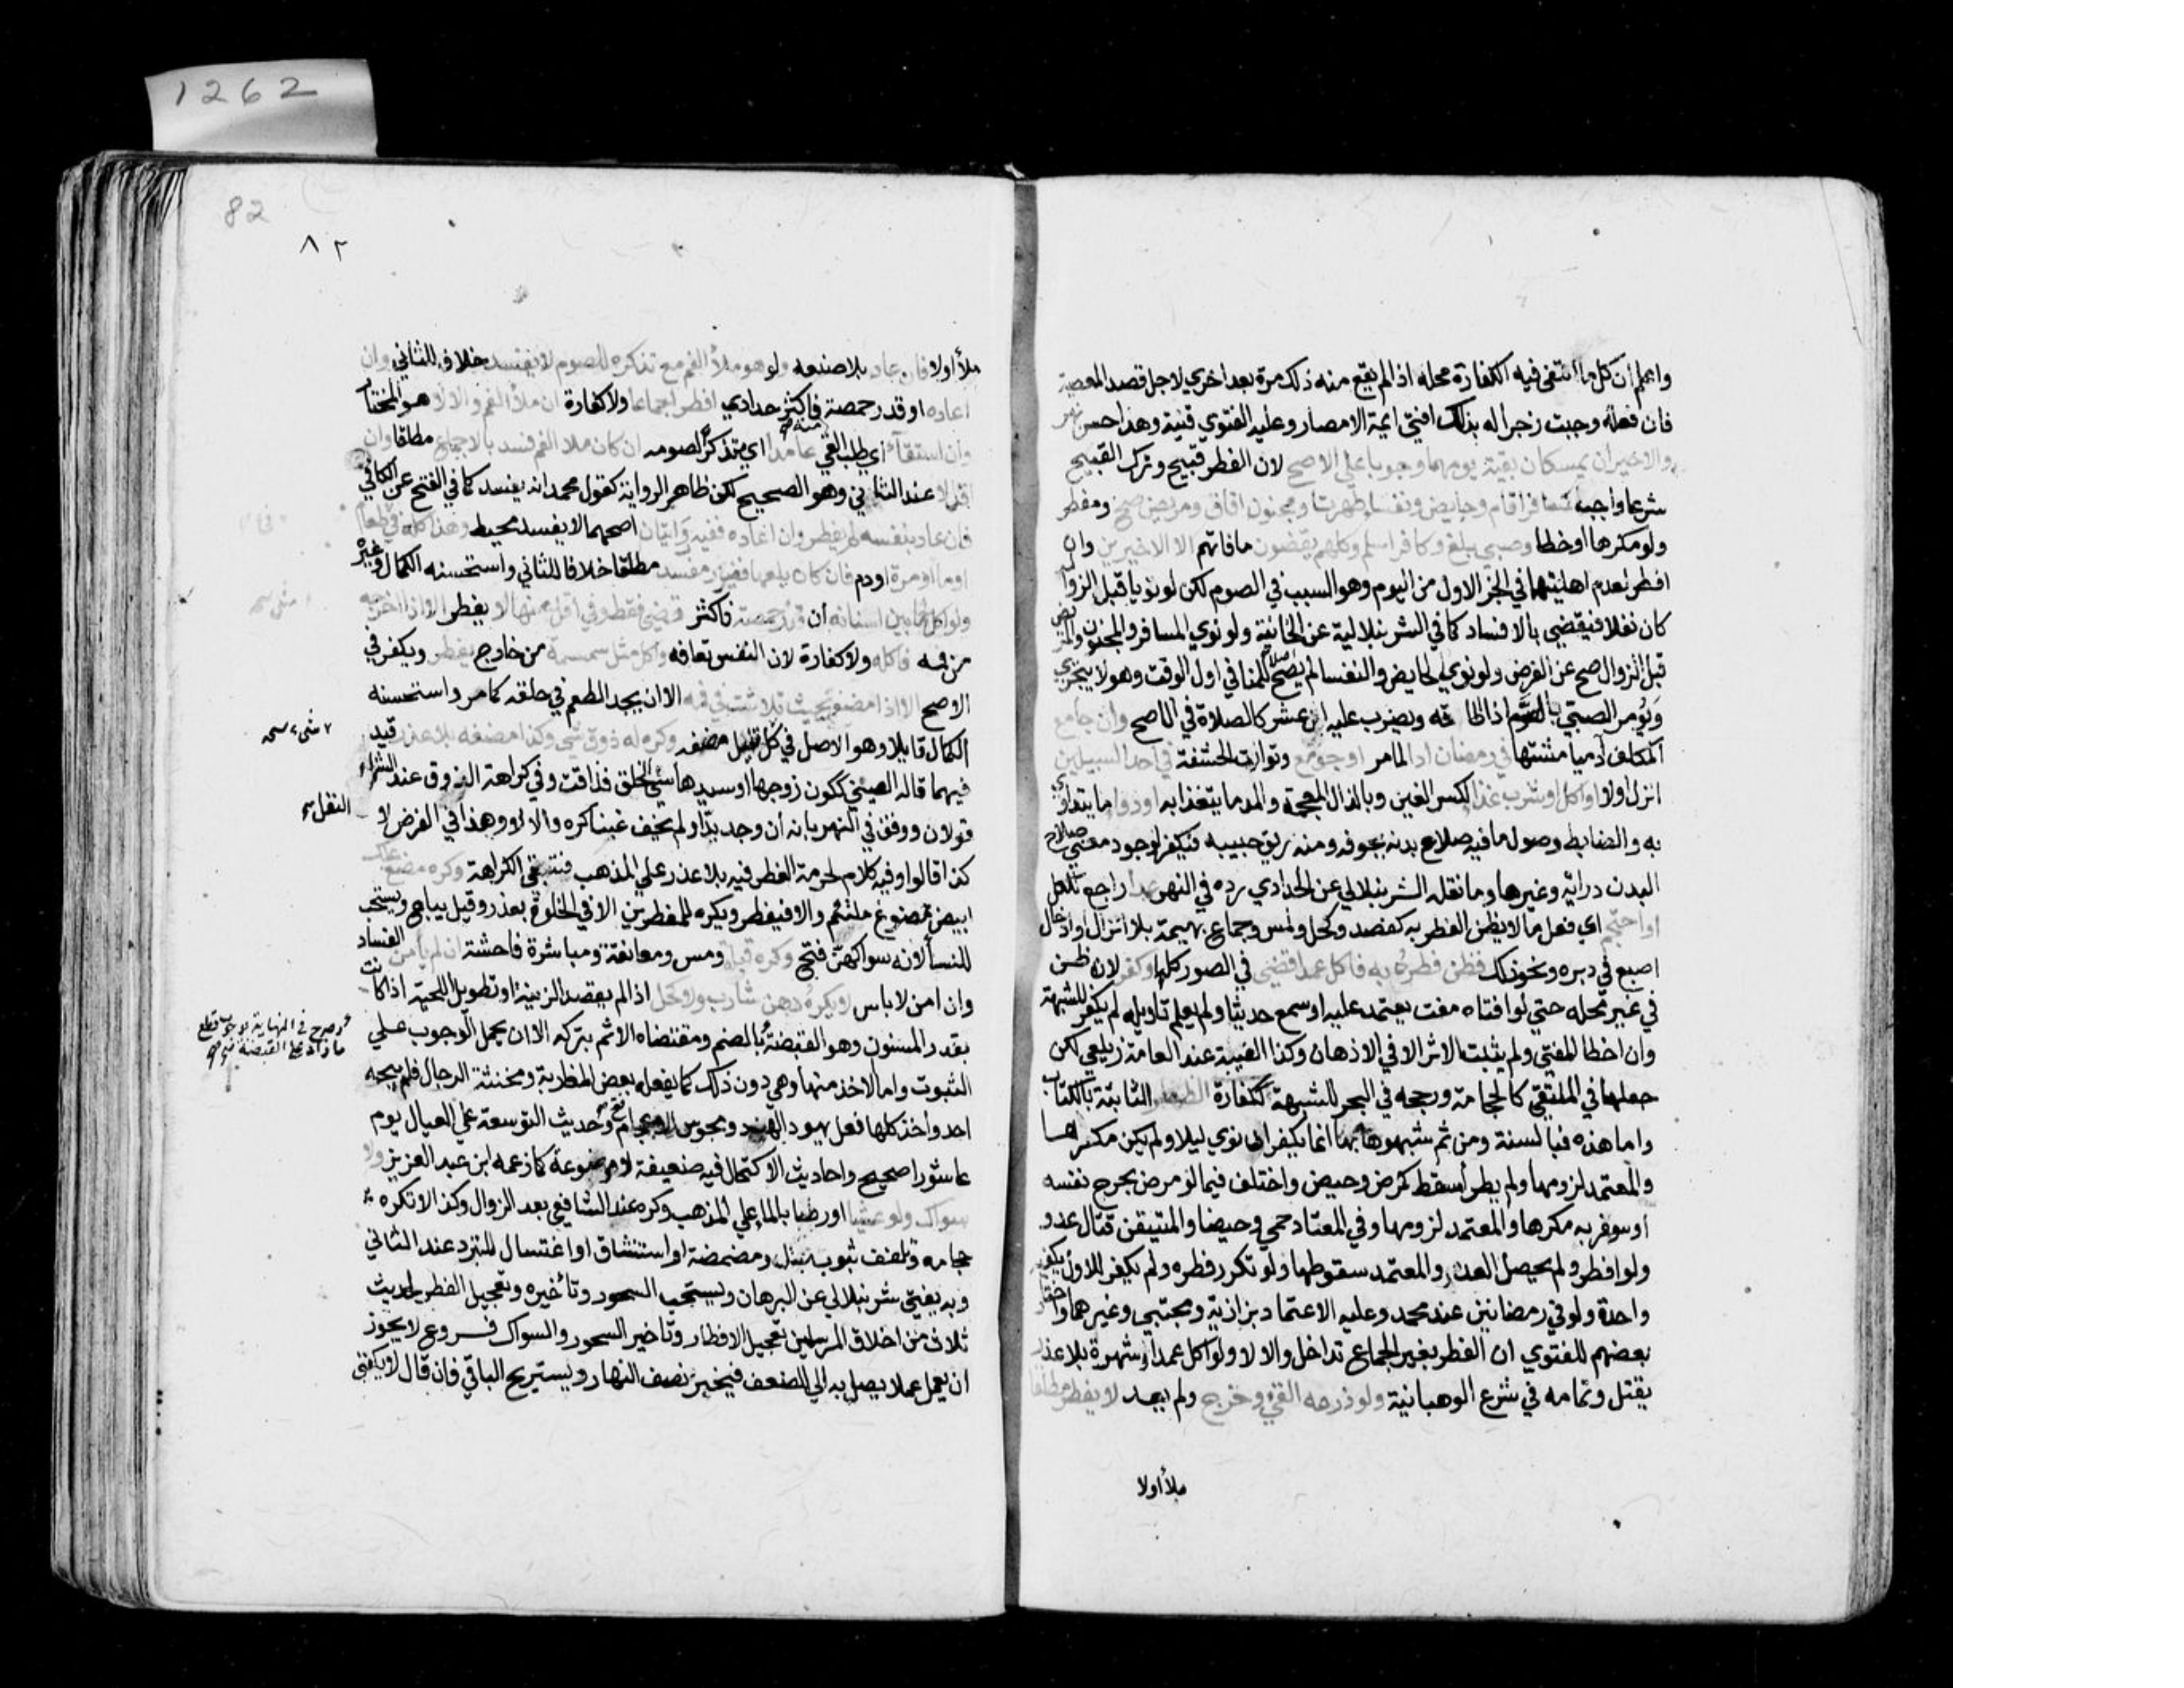 1262
82
٨٢
واعلم أن كل ما انتفى فيه الكفارة محله اذا لم يقع منه ذلك مرة بعد اخري لاجل قصد المعصية
فان فعله وجبت زجرا له بذلك افتي ايمة الامصار وعليه الفتوي قنية وهذا حسن نهر
والاخيران يمسكان بقية يومهما وجوبا علي الاصح لان الفطر قبيح وترك القبيح
شرعا واجب كمسافر اقام وحايض ونفساء طهرتا ومجنون افاق ومريض صح ومفطر
ولو مكرها او خطا وصبي بلغ وكافر اسلم وكلهم يقضون ما فاتهم الا الاخيرين وان
افطر لعدم اهليتهما في الجز الاول من اليوم وهو السبب في الصوم لكن لو نويا قبل الزوال
كان نفلا فيقضي بالافساد كما في الشرنبلالية عن الخانية ولو نوي المسافر والمجنون والمريض
قبل الزوال صح عن الفرض ولو نوي الحايض والنفسا لم يصح اصلا للمنافي اول الوقت وهو لا يتجزي
ويؤمر الصبي بالصوم اذا اطاقه ويضرب عليه ابن عشر كالصلاة في الاصح وان جامع
المكلف ادميا مشتهى في رمضان ادا لما مر او جومع وتوارت الحشفة في احد السبيلين
انزل اولا او اكل او شرب غذا بكسر الغين وبالذال المعجمة والمد ما يتغذا به او دوا ما يتداوي
به والضابط وصول ما فيه صلاح بدنه بجوفه ومنه ريق حبيبه فيكفر لوجود معني صلاح
البدن دراية وغيرها وما نقله الشرنبلالي عن الحدادي رده في النهر عمدا راجع للكل
او احتجم اي فعل ما لا يظن الفطر به كفصد وكحل ولمس وجماع بهيمة بلا انزال وادخال
اصبع في دبره ونحو ذلك فظن فطره به فاكل عمدا قضي في الصور كلها وكفر لان ظن
في غير محله حتي لو افتاه مفت يعتمد عليه او سمع حديثا ولم يعلم تاويله لم يكفر للشبهة
وان اخطا المفتي ولم يثبت الاثر الا في الادهان وكذا الغيبة عند العامة زيلعي لكن
جعلها في الملتقي كالحجامة ورجحه في البحر للشبهة ككفارة الظهار الثابتة بالكتاب
واما هذه فبالسنة ومن ثم شبهوها بها انما يكفر ان نوي ليلا ولم يكن مكرها
والمعتمد لزومها ولم يطرأ مسقط كمرض وحيض واختلف فيما لو مرض بجرح نفسه
او سوفر به مكرها والمعتمد لزومها وفي المعتاد حمي وحيضا والمتيقن قتال عدو
ولو افطر ولم يحصل العذر والمعتمد سقوطها ولو تكرر فطره ولم يكفر للاول يكفيه
واحدة ولو في رمضانين عند محمد وعليه الاعتماد بزازية ومجتبي وغيرهما واختار
بعضهم للفتوي ان الفطر بغير الجماع تداخل والا لا ولو اكل عمدا شهرة بلا عذر
يقتل وتمامه في شرع الوهبانية ولو ذرعه القيء وخرج ولم يعد لا يفطر مطلقا
ملأ أولا
ملأ أولا فان عاد بلا صنعه ولو هو ملأ الفم مع تذكره للصوم لا يفسد خلافا للثاني وان
اعاده او قدر حمصة فاكثر حدادي افطر اجماعا ولا كفارة ان ملأ الفم والا لا هو المختار
وان استقاء أي طلب القي عامدا اي متذكرا لصومه ان كان ملا الفم فسد بالاجماع مطلقا وان
اقل لا عند الثاني وهو الصحيح لكن ظاهر الرواية كقول محمد انه يفسد كما في الفتح عن الكافي
فان عاد بنفسه لم يفطر وان اعاده ففيه روايتان اصحهما لا يفسد محيط وهذا كله في طعام
او ماء او مرة او دم فان كان بلغما فغير مفسد مطلقا خلافا للثاني واستحسنه الكمال وغيره
ولو اكل لحما بين اسنانه ان قدر حمصة فاكثر قضي فقط وفي اقل منها لا يفطر الا اذا اخرجه
من فمه فاكله ولا كفارة لان النفس تعافه واكل مثل سمسمة من خارج يفطر ويكفر في
الاصح الا اذا مضغ بحيث تلاشت في فمه الا ان يجد الطعم في حلقه كما مر واستحسنه
الكمال قايلا وهو الاصل في كل قليل مضغه وكره له ذوق شي وكذا مضغه بلا عذر قيد
فيهما قاله العيني ككون زوجها او سيدها سيئ الخلق فذاقت وفي كراهة الذوق عند الشراء
قولان ووفق في النهر بانه ان وجد بدا ولم يخف غبنا كره والا لا وهذا في الفرض لا
النفل
كذا قالوا وفيه كلام لحرمة الفطر فيه بلا عذر علي المذهب فتبقي الكراهة وكره مضغ علك
ابيض ممضوغ ملتئم والا فيفطر ويكره للمفطرين الا في الخلوة بعذر وقيل يباح ويستحب
للنسا لانه سواكهن فتح وكره قبلة ومس ومعانقة ومباشرة فاحشة ان لم يامن الفساد
وان امن لا باس لا يكره دهن شارب ولا كحل اذا لم يقصد الزينة او تطويل اللحية اذا كانت
بقدر المسنون وهو القبضة
وصرح في النهاية بوجوب قطع
ما زاد علي القبضة
بالضم ومقتضاه الاثم بتركه الا ان يحمل الوجوب علي
الثبوت واما الاخذ منها وهي دون ذلك كما يفعله بعض المغاربة ومخنثة الرجال فلم يبحه
احد وأخذ كلها فعل يهود الهند ومجوس الاعجام فتح وحديث التوسعة علي العيال يوم
عاشورا صحيح واحاديث الاكتحال فيه ضعيفة لا موضوعة كما زعمه ابن عبد العزيز ولا
سواك ولو عشيا او رطبا بالماء علي المذهب وكره عند الشافعي بعد الزوال وكذا لا تكره
حجامه وتلفف بثوب مبتل ومضمضة او استنشاق او اغتسال للتبرد عند الثاني
وبه يفتي شرنبلالي عن البرهان ويستحب السحور وتأخيره وتعجيل الفطر لحديث
ثلاث من اخلاق المرسلين تعجيل الافطار وتاخير السحور والسواك فروع لا يجوز
ان يعمل عملا يصل به الي الضعف فيخبز نصف النهار ويستريح الباقي فان قال لا يكفي